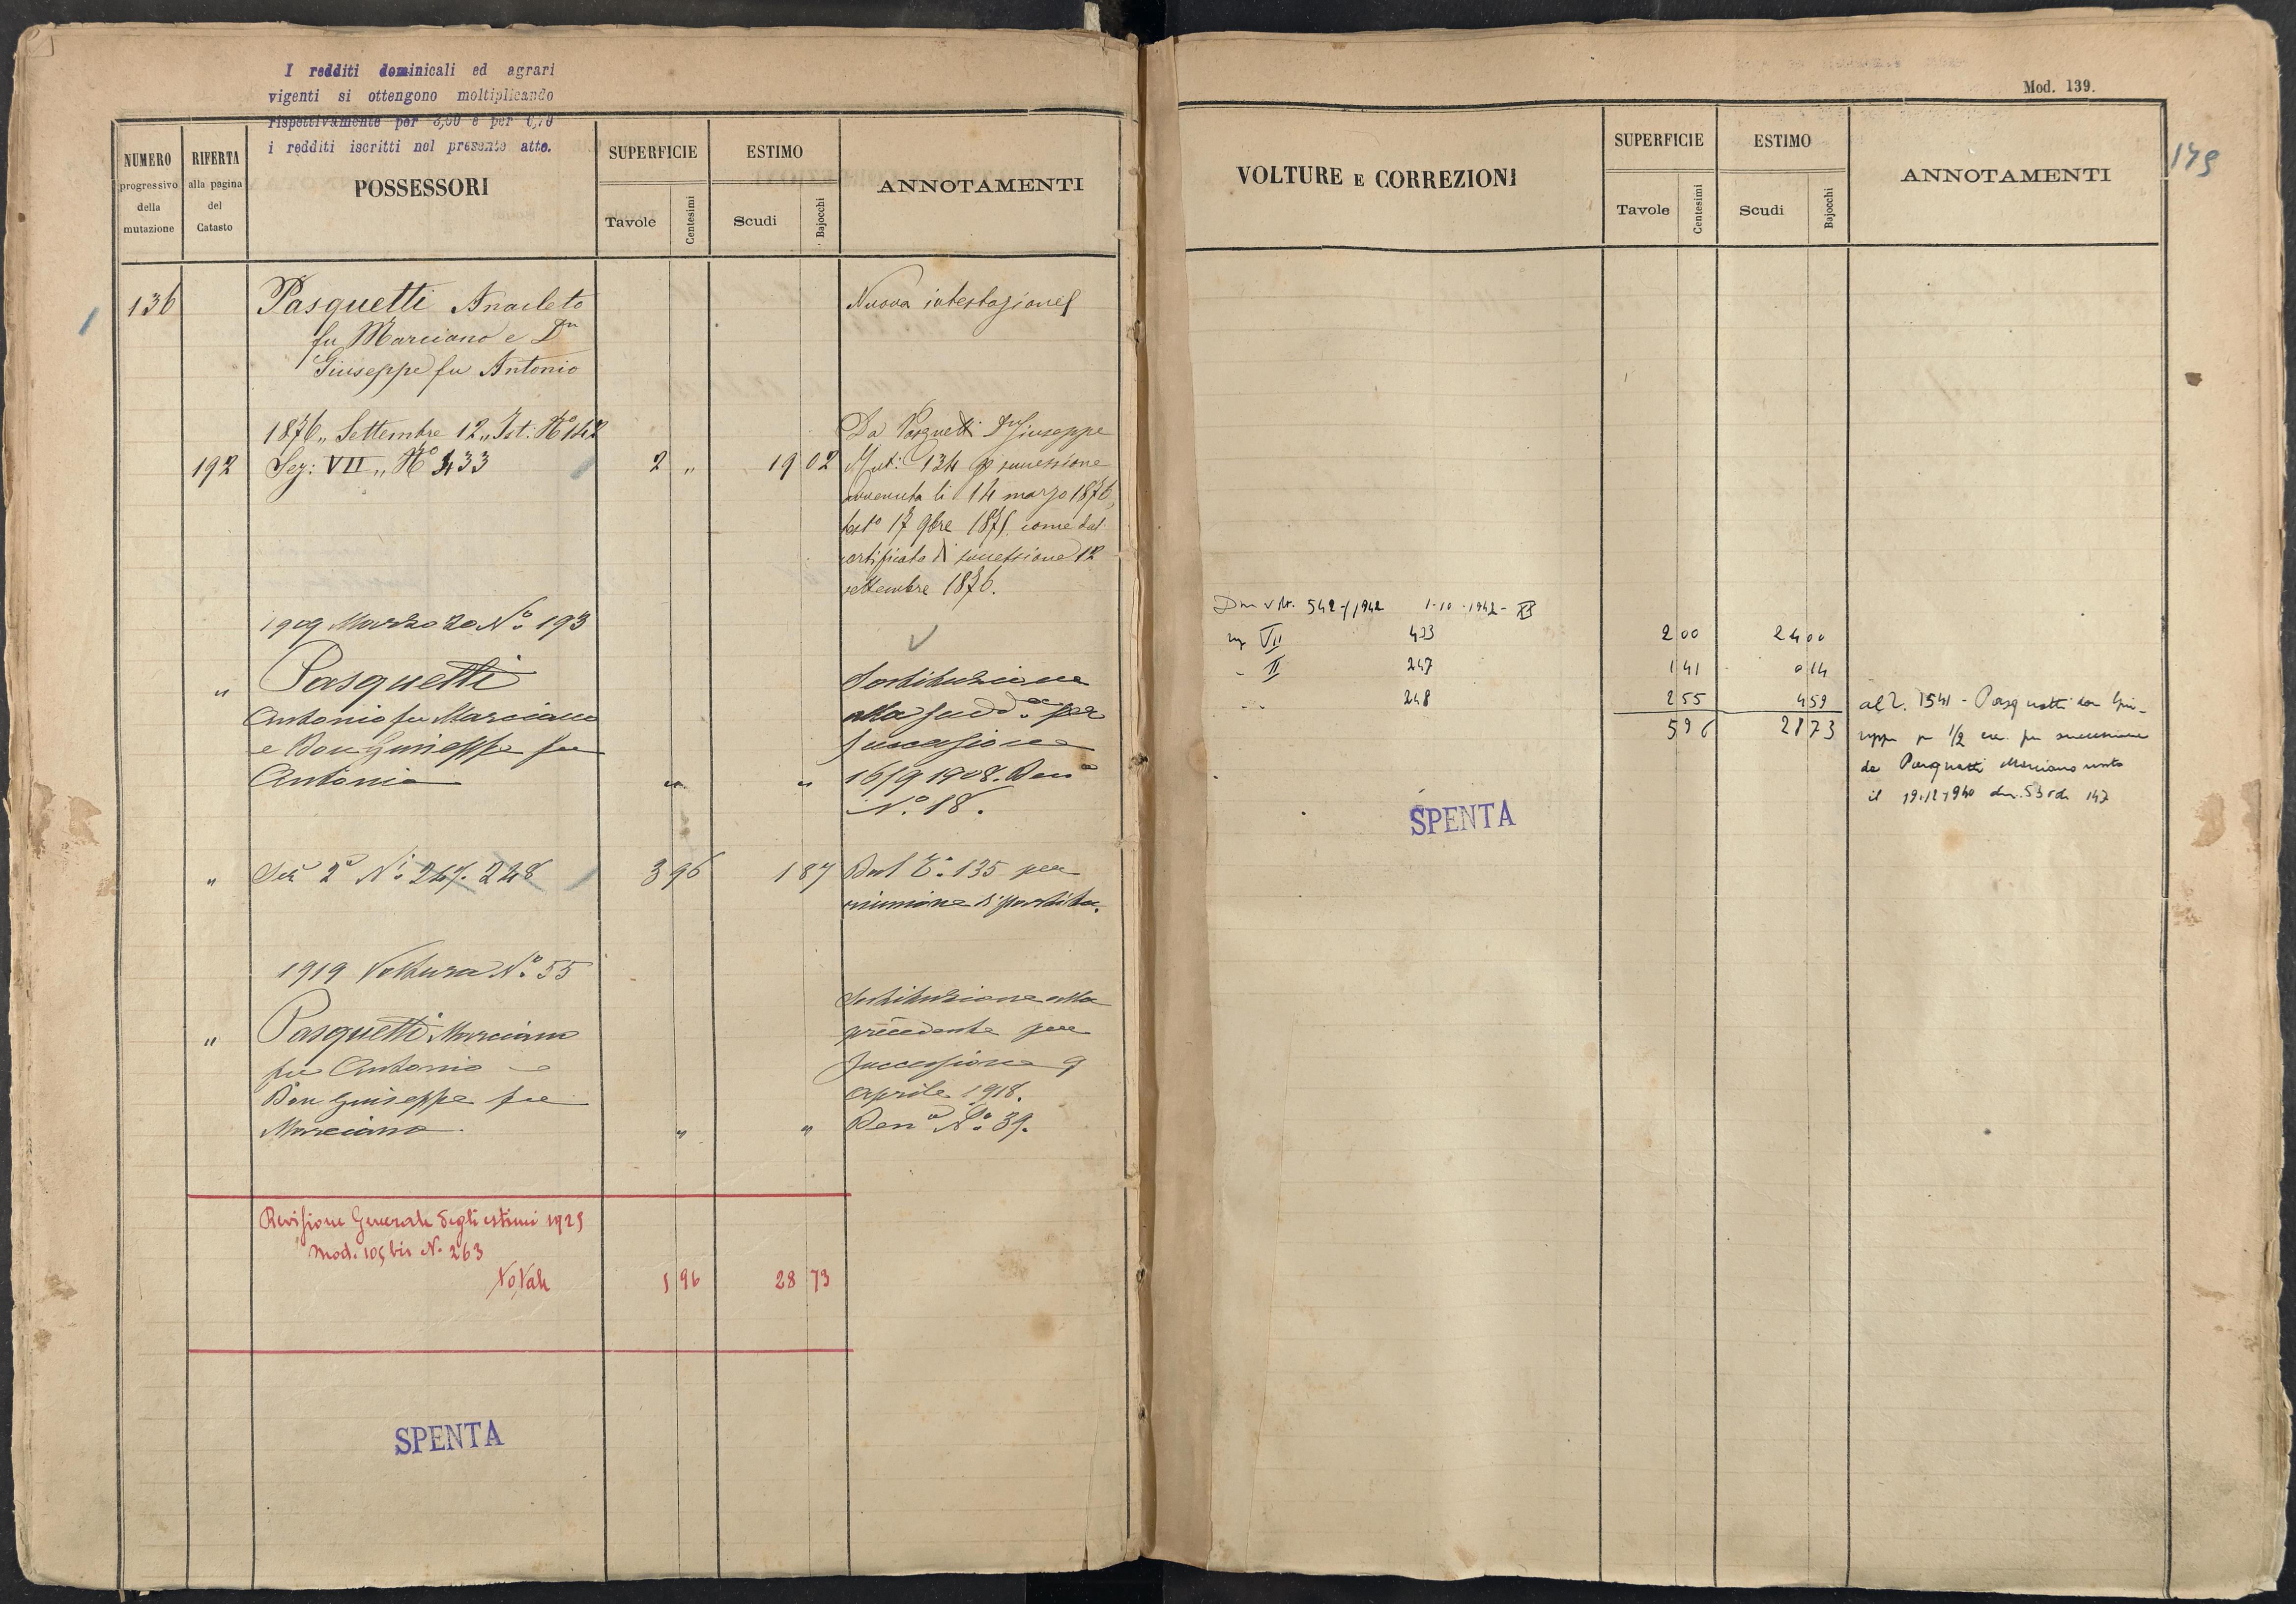 I redditi dominicali ed agrari
vigenti si ottengono moltiplicando
rispettivamente per 3,00 e per 0,70
i redditi iscritti nel presente atto.
NUMERO
progressivo
della
mutazione
RIFERTA
alla pagina
del
Catasto
POSSESSORI
SUPERFICIE
Tavole
Centesimi
ESTIMO
Scudi
Bajocchi
ANNOTAMENTI
136
Pasquetti Anacleto
fu Marciano e Dn
Giuseppe fu Antonio
Nuova intestazione
1876 „ Settembre 12 „ Ist: No 142
192 Sez: VII „ No 433 2 „ 19 02
Da Pasquetti Giuseppe
Mut: 134 p successione
avvenuta li 14 marzo 1876,
test° 17 9bre 1871 come dal
certificato di successione 12
settembre 1876.
1909 Marzo 20 No. 193
„ Pasquetti
Antonio fu Marciano
e Don Giuseppe fu
Antonio „ „
Sostituzione
alla sudd.a per
successione
16/9 1908. Den a
No. 18.
„ Sez 2a Ni 247. 248 3 96 1 87
Dal T. 135 per
riunione di partita.
1919 Voltura No. 55
„ Pasquetti Marciano
fu Antonio e
Don Giuseppe fu
Marciano. „ „
Sostituzione alla
precedente per
successione 9
Aprile 1918.
Den a No. 39.
Revisione Generale degli estimi 1925
Mod. 105 bis N. 263
Totale 5 96 28 73
SPENTA
Mod. 139.
149
VOLTURE E CORREZIONI
SUPERFICIE
Tavole
Centesimi
ESTIMO
Scudi
Bajocchi
ANNOTAMENTI
542-/1942 1-10-1942-
VII 433 2 00 24 00
" II 247 1 41 0 14
248 2 55 4 59
5 96 28 73
al T. 1541 - Pasquetti don Giu-
seppe p 1/2 per successione
da Pasquetti Marciano morto
il 19.12.1940 den. 147
SPENTA